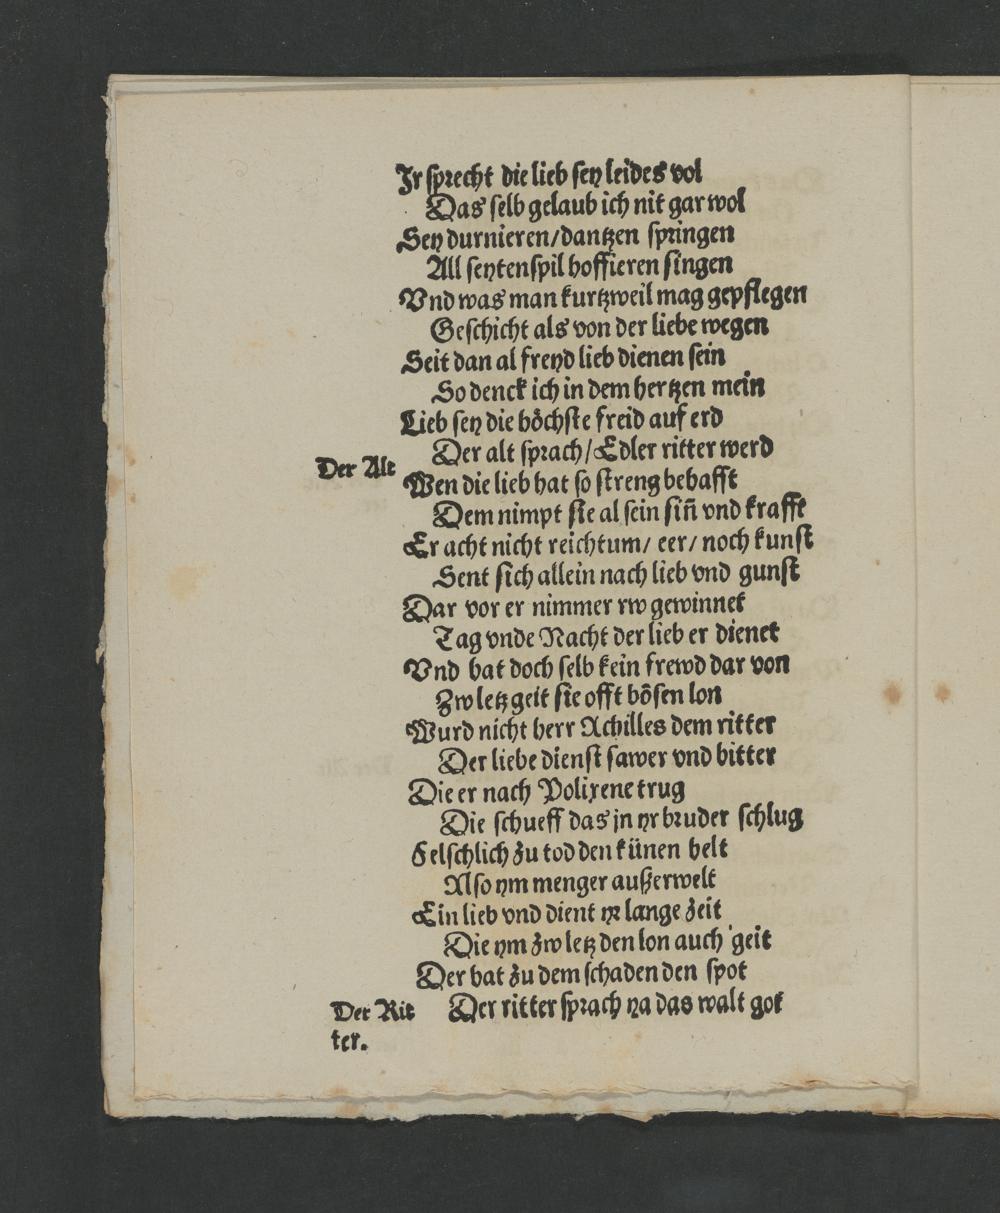 Jr sprecht die lieb sey leides vol
Das selb gelaub ich nit gar wol
Sey durnieren/dantzen springen
All seytenspil hoffieren singen
Vnd was man kurtzweil mag gepflegen
Geschicht als von der liebe wegen
Seit dan al freyd lieb dienen sein
So denck ich in dem hertzen mein
Lieb sey die höchste freid auf erd
Der alt sprach/Edler ritter werd
Der Alt
Wen die lieb hat so streng behafft
Dem nimpt sie al sein siñ vnd krafft
Er acht nicht reichtum/ eer/ noch kunst
Sent sich allein nach lieb vnd gunst
Dar vor er nimmer rw gewinnet
Tag vnde Nacht der lieb er dienet
Vnd hat doch selb kein frewd dar von
Zw letz geit sie offt bösen lon
Wurd nicht herr Achilles dem ritter
Der liebe dienst sawer vnd bitter
Die er nach Polixene trug
Die schueff das jn yr bruder schlug
Felschlich zu tod den künen helt
Also ym menger außerwelt
Ein lieb vnd dient yr lange zeit
Die ym zw letz den lon auch geit
Der hat zu dem schaden den spot
Der Rit Der ritter sprach ya das walt got
ter.